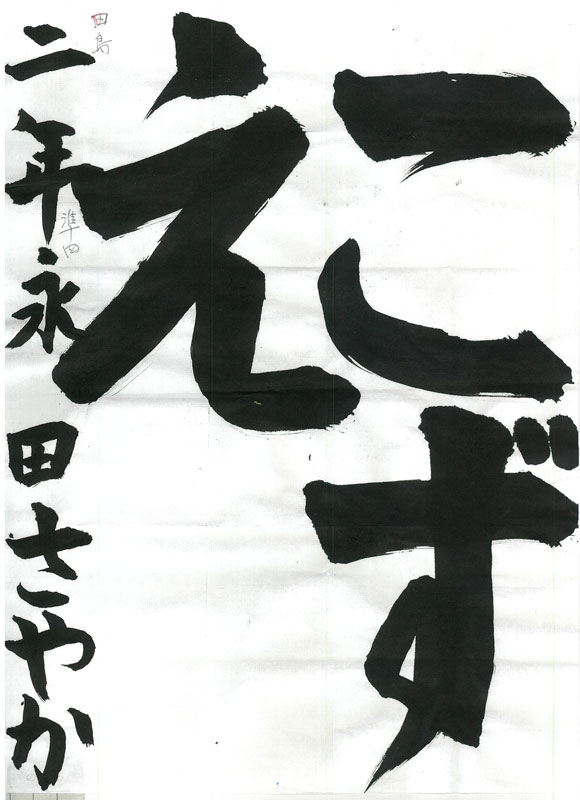 こず
え
二年永田さやか
田島
準四